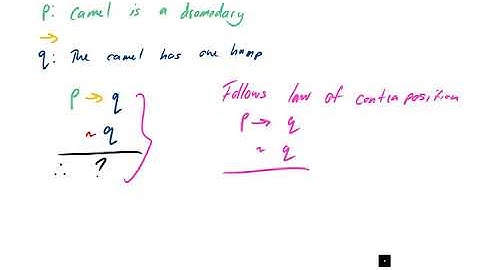 p: camel is a dromedary
→
q: The camel has one hump
p → q
~ q
∴ ?
Follows law of contraposition
p → q
~ q